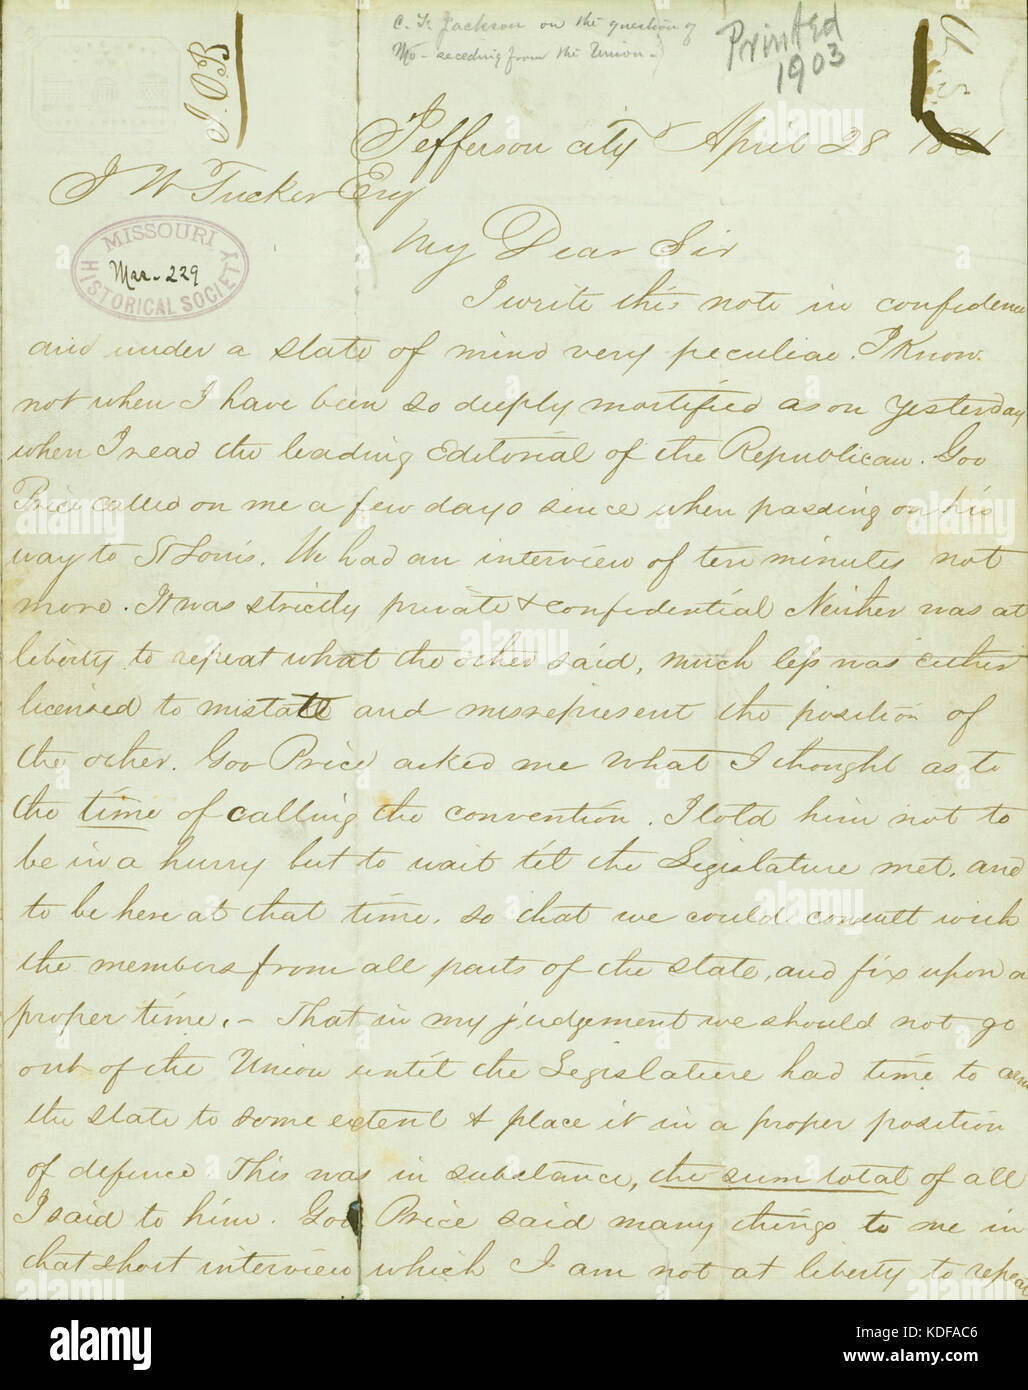 C. F. Jackson on the question of
Mo- seceding from the Union-
Printed
1903
J.O.B
Jefferson city April 28 1861
J W Tucker Esq
MISSOURI
HISTORICAL SOCIETY
229
My Dear Sir
I write this note in confidence
and under a state of mind very peculiar. I Know
not when I have been so deeply mortified as on Yesterday
when I read the leading Editorial of the Republican. Gov
Price called on me a few days since when passing on his
way to St Louis. We had an interview of ten minutes not
more. It was strictly private & confidential Neither was at
liberty to repeat what the other said, much less was either
licensed to mistate and misrepresent the position of
the other. Gov Price asked me what I thought as to
the time of calling the convention. I told him not to
be in a hurry but to wait till the Legislature met, and
to be here at that time, so that we could consult with
the members from all parts of the state, and fix upon a
proper time,- That in my judgement we should not go
out of the Union until the Legislature had time to arm
the state to some extent & place it in a proper position
of defence This was in substance, the sum total of all
I said to him. Gov Price said many things to me in
that short interview which I am not at liberty to repeat
alamy
Image ID: KDFAC6
www.alamy.com